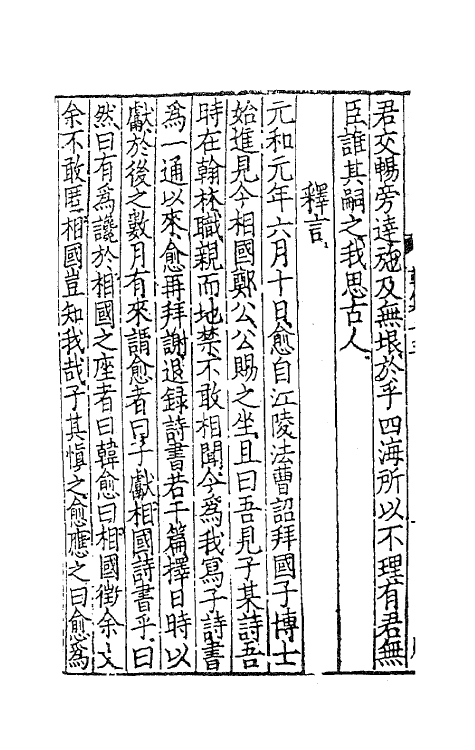 君交暢旁達施及無垠於乎四海所以不理有君無
臣誰其嗣之我思古人
釋言
元和元年六月十日愈自江陵法曹詔拜國子博士
始進見今相國鄭公公賜之坐且曰吾見子某詩吾
時在翰林職親而地禁不敢相聞今爲我寫子詩書
爲一通以來愈再拜謝退録詩書若干篇擇日時以
獻於後之數月有來謂愈者曰子獻相國詩書乎曰
然曰有爲讒於相國之座者曰韓愈曰相國徵余文
余不敢匿相國豈知我哉子其慎之愈應之曰愈爲